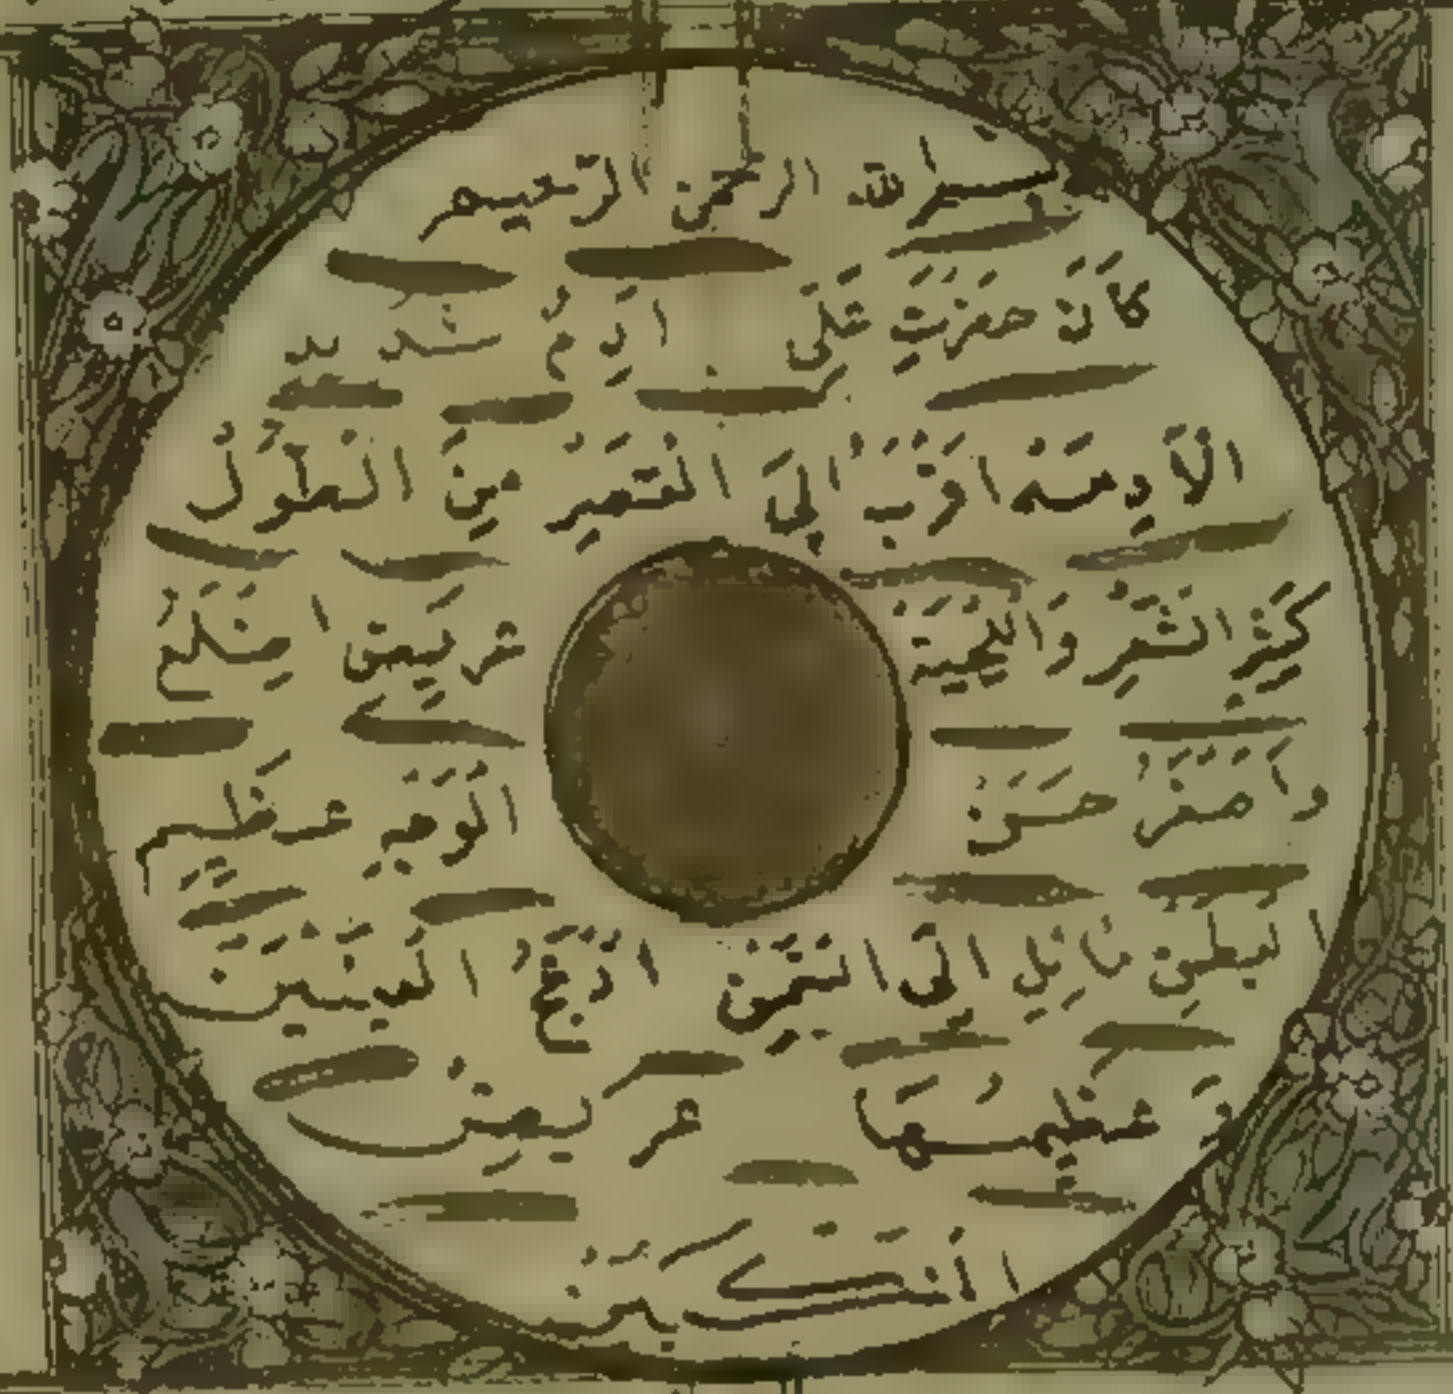 بسم الله الرحمن الرحيم
كَانَ حضرتِ عَلَى ادَمُ شديد
الْاَدِمَة اقْرَبُ اِلَى الْقَصِيرِ مِنَ الطَّوْلِ
كَثِيرُ الشَّعْرِ وَاللِّحْيَةِ عريض
حَسَنُ الوَجْهِ عَظِيم
البطن مَائِل الَى السَّمَنِ ادْعَجُ العينَيْن
وَ عظيمهمَا عريض
المنكبين